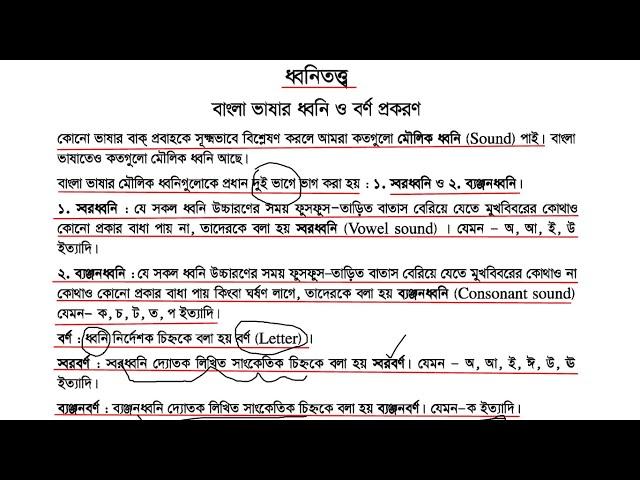 ধ্বনিতত্ত্ব
বাংলা ভাষার ধ্বনি ও বর্ণ প্রকরণ
কোনো ভাষার বাক্ প্রবাহকে সূক্ষ্মভাবে বিশ্লেষণ করলে আমরা কতগুলো মৌলিক ধ্বনি (Sound) পাই। বাংলা
ভাষাতেও কতগুলো মৌলিক ধ্বনি আছে।
বাংলা ভাষার মৌলিক ধ্বনিগুলোকে প্রধান দুই ভাগে ভাগ করা হয় : ১. স্বরধ্বনি ও ২. ব্যঞ্জনধ্বনি।
১. স্বরধ্বনি : যে সকল ধ্বনি উচ্চারণের সময় ফুসফুস-তাড়িত বাতাস বেরিয়ে যেতে মুখবিবরের কোথাও
কোনো প্রকার বাধা পায় না, তাদেরকে বলা হয় স্বরধ্বনি (Vowel sound) । যেমন – অ, আ, ই, উ
ইত্যাদি।
২. ব্যঞ্জনধ্বনি : যে সকল ধ্বনি উচ্চারণের সময় ফুসফুস-তাড়িত বাতাস বেরিয়ে যেতে মুখবিবরের কোথাও না
কোথাও কোনো প্রকার বাধা পায় কিংবা ঘর্ষণ লাগে, তাদেরকে বলা হয় ব্যঞ্জনধ্বনি (Consonant sound)
যেমন– ক, চ, ট, ত, প ইত্যাদি।
বর্ণ : ধ্বনি নির্দেশক চিহ্নকে বলা হয় বর্ণ (Letter) ।
স্বরবর্ণ : স্বরধ্বনি দ্যোতক লিখিত সাংকেতিক চিহ্নকে বলা হয় স্বরবর্ণ। যেমন – অ, আ, ই, ঈ, উ, ঊ
ইত্যাদি।
ব্যঞ্জনবর্ণ : ব্যঞ্জনধ্বনি দ্যোতক লিখিত সাংকেতিক চিহ্নকে বলা হয় ব্যঞ্জনবর্ণ। যেমন–ক ইত্যাদি।